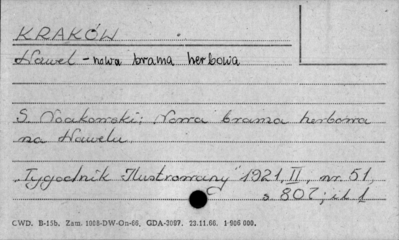 KRAKÓW
Wawel - nowa brama herbowa
S. Noakowski: Nowa brama herbowa
na Wawelu.
"Tygodnik Ilustrowany" 1921, II, nr. 51,
s 807; il 1
CWD. B-15b. Zam. 1008-DW-On-66, GDA-3097. 23.11.66. 1-906 000.